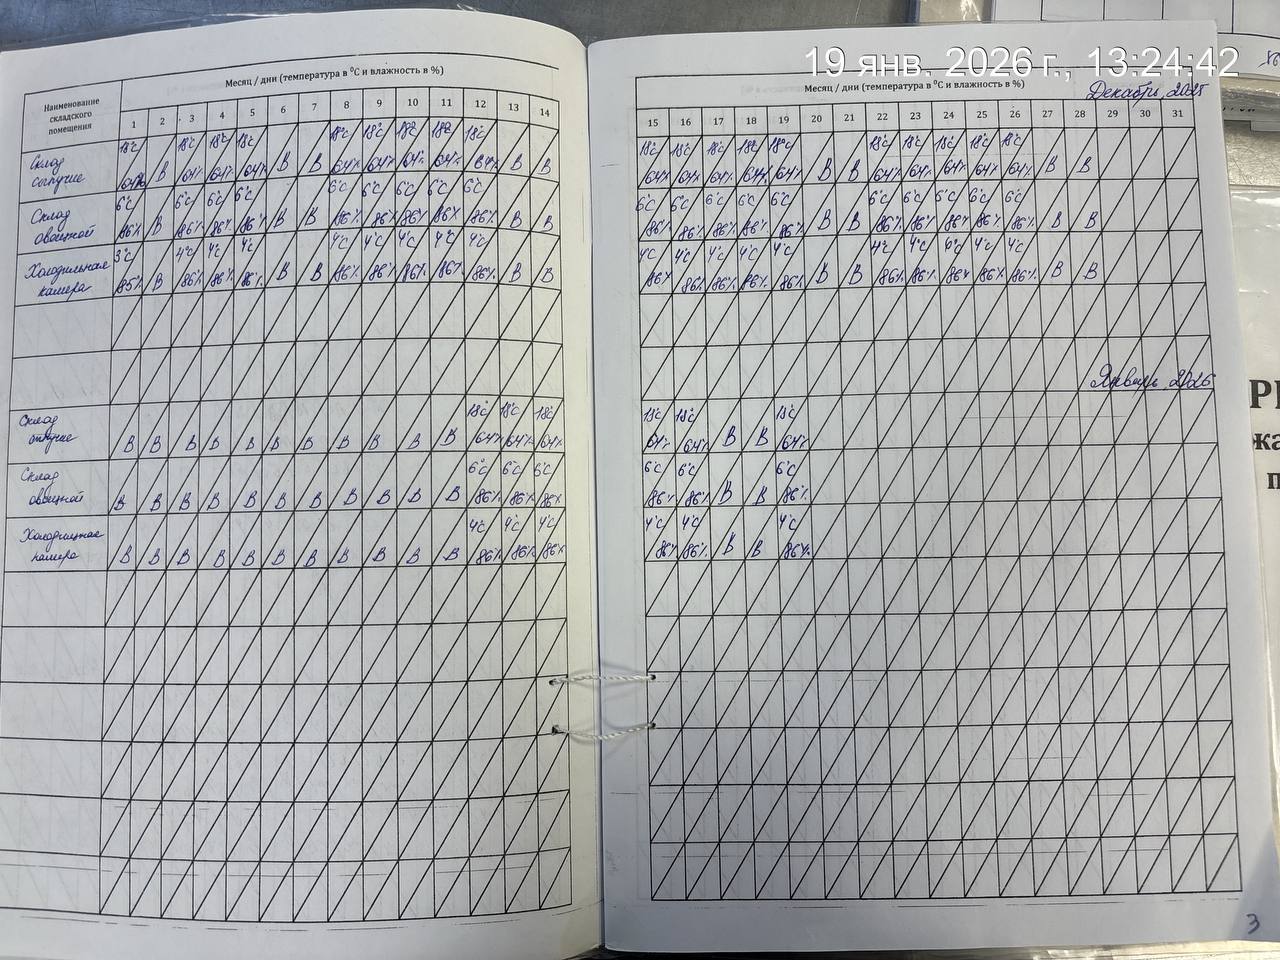 19 янв. 2026 г., 13:24:42
Месяц / дни (температура в °С и влажность в %)
Наименование складского помещения
1 2 3 4 5 6 7 8 9 10 11 12 13 14
Склад сыпучие
18°С 18°С 18°С 18°С 18°С 18°С 18°С 18°С 18°С
64% В 64% 64% 64% В В 64% 64% 64% 64% 64% В В
Склад овощной
6°С 6°С 6°С 6°С 6°С 6°С 6°С 6°С 6°С
86% В 86% 86% 86% В В 86% 86% 86% 86% 86% В В
Холодильная камера
3°С 4°С 4°С 4°С 4°С 4°С 4°С 4°С 4°С
85% В 86% 86% 86% В В 86% 86% 86% 86% 86% В В
Склад
В В В В В В В В В В В 18°С 64% 18°С 64% 18°С 64%
Склад овощной
В В В В В В В В В В В 6°С 86% 6°С 86% 6°С 86%
Холодильная камера
В В В В В В В В В В В 4°С 86% 4°С 86% 4°С 86%
Месяц / дни (температура в °С и влажность в %)
Декабрь 2025
15 16 17 18 19 20 21 22 23 24 25 26 27 28 29 30 31
18°С 18°С 18°С 18°С 18°С 18°С 18°С 18°С 18°С 18°С
64% 64% 64% 64% 64% В В 64% 64% 64% 64% 64% В В
6°С 6°С 6°С 6°С 6°С 6°С 6°С 6°С 6°С 6°С
86% 86% 86% 86% 86% В В 86% 86% 86% 86% 86% В В
4°С 4°С 4°С 4°С 4°С 4°С 4°С 6°С 4°С 4°С
86% 86% 86% 86% 86% В В 86% 86% 86% 86% 86% В В
Январь 2026
18°С 18°С 18°С
64% 64% В В 64%
6°С 6°С 6°С
86% 86% В В 86%
4°С 4°С 4°С
86% 86% В В 86%
3